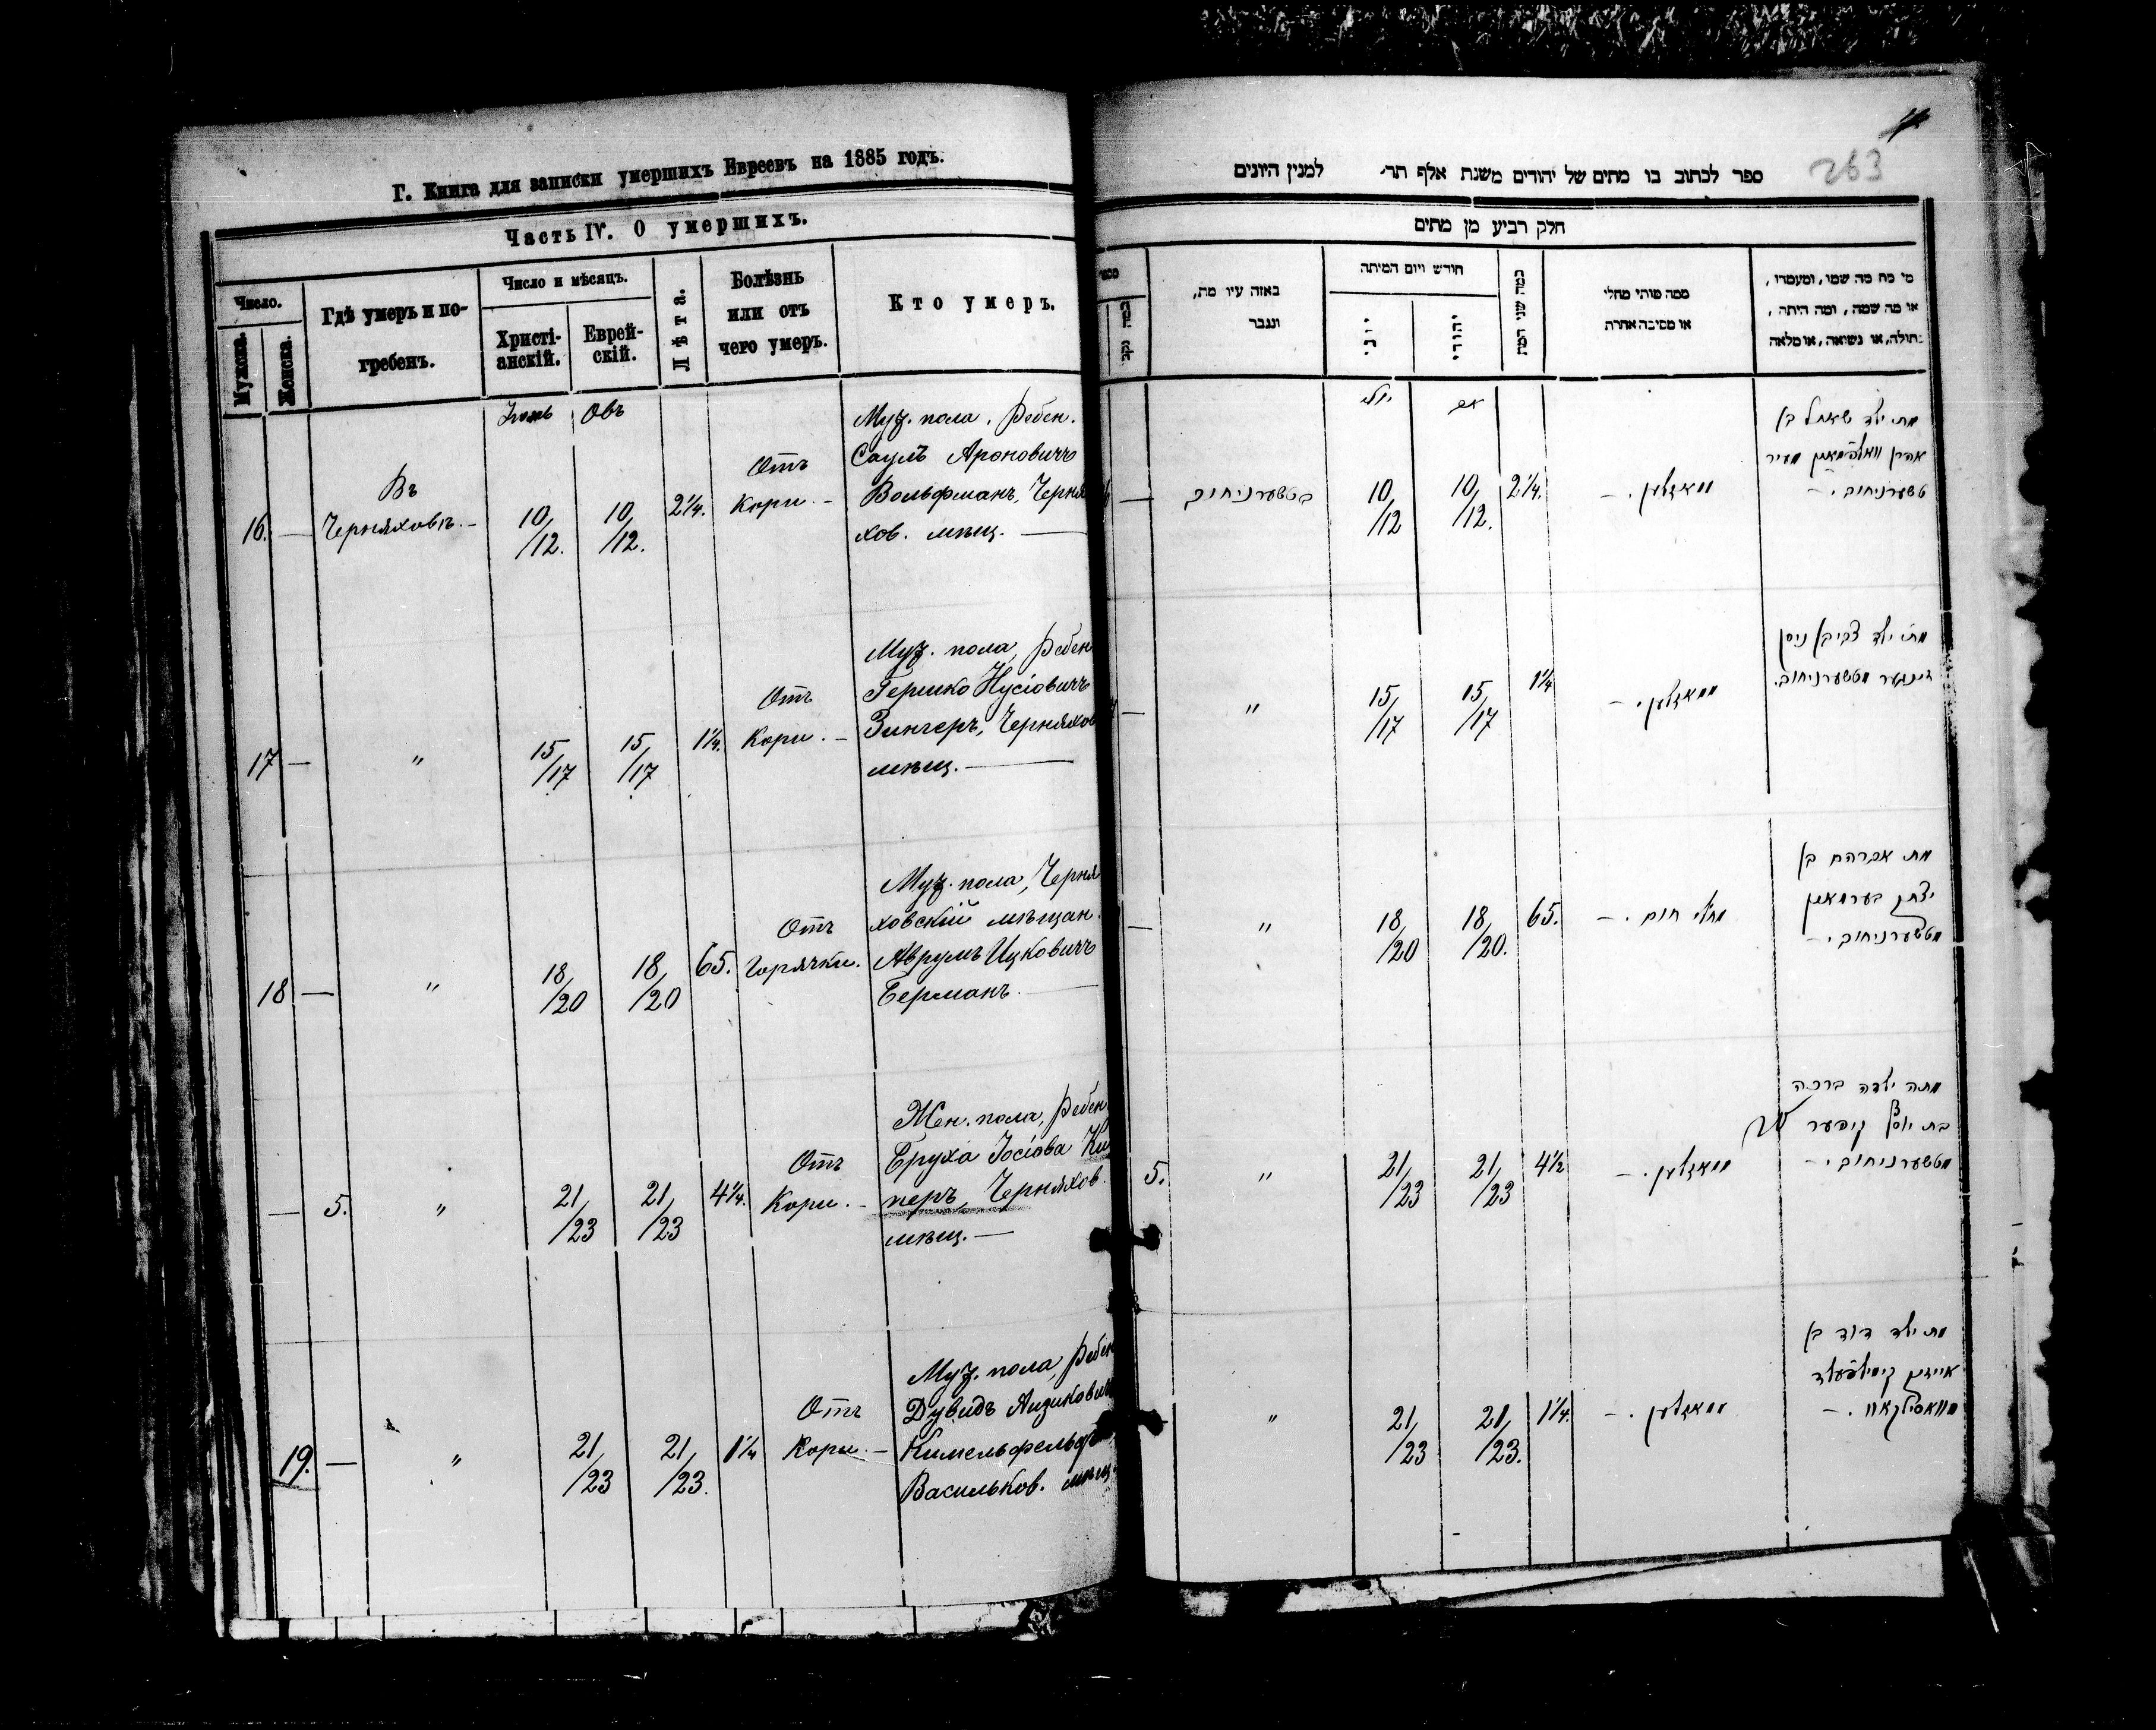 Г. Книга для записки умершихъ Евреевъ на 1885 годъ.
Часть IV. О умершихъ.
Число.
Мужска.
Женска.
Гдѣ умеръ и по-
гребенъ.
Число и мѣсяцъ.
Христі-
анскій.
Еврей-
скій.
Лѣта.
Болѣзнь
или отъ
чего умеръ.
Кто умеръ.
Овъ
16. —
Въ
Черняховѣ. —
10/12.
10/12.
2¼.
Отъ
Кори. —
Муж. пола, Ребен.
Саулъ Ароновичъ
Вольфманъ, Черня
хов. мѣщ. —
17 —
"
15/17
15/17
1¼.
Отъ
Кори. —
Муж. пола, Ребен
Гершко Нусіовичъ
Зингеръ, Черняхов
мѣщ. —
18 —
"
18/20
18/20
65.
Отъ
Горячки.
Муж. пола, Черня
ховскій мѣщан.
Аврумъ Ицковичъ
Берманъ. —
— 5.
"
21/23
21/23
4¼.
Отъ
Кори. —
Жен. пола, Ребен
Бруха Іосіова Ки
перъ, Черняхов.
мѣщ. —
19. —
"
21/23
21/23.
1¼
Отъ
Кори. —
Муж. пола, Ребен
Дувидъ Аизикович
Кимельфельдъ
Васильков. мѣщ.
263
ספר לכתוב בו מתים של יהודים משנת אלף תר' למנין היונים
חלק רביע מן מתים
באזה עיר מת,
ונגבר
חודש ויום המיתה
יוני
יהודי
כמה שני המת
ממה מותי מחלי
או מסיבה אחרת
מי מת מה שמו, ומעמדו,
או מה שמה, ומה היתה,
בתולה, או נשואה, או מלאה
יולי
אב
—
בטשערניחוב
10/12
10/12.
2¼.
מאזלען. —
מת ילד שאול בן
אהרן וואלפמאן מעיר
טשערניחוב. —
—
"
15/17
15/17
1¼
מאזלען. —
מת ילד צבי בן ניסן
זינגער מטשערניחוב.
—
"
18/20
18/20.
65.
מחלי חום. —
מת אברהם בן
יצחק בערמאן
מטשערניחוב. —
5.
"
21/23
21/23
4½
מאזלען. —
מתה ילדה ברכה
בת יוסף קיפער
מטשערניחוב. —
"
21/23
21/23.
1¼.
מאזלען. —
מת ילד דוד בן
אייזיק קימילפעלד
מוואסילקאוו. —